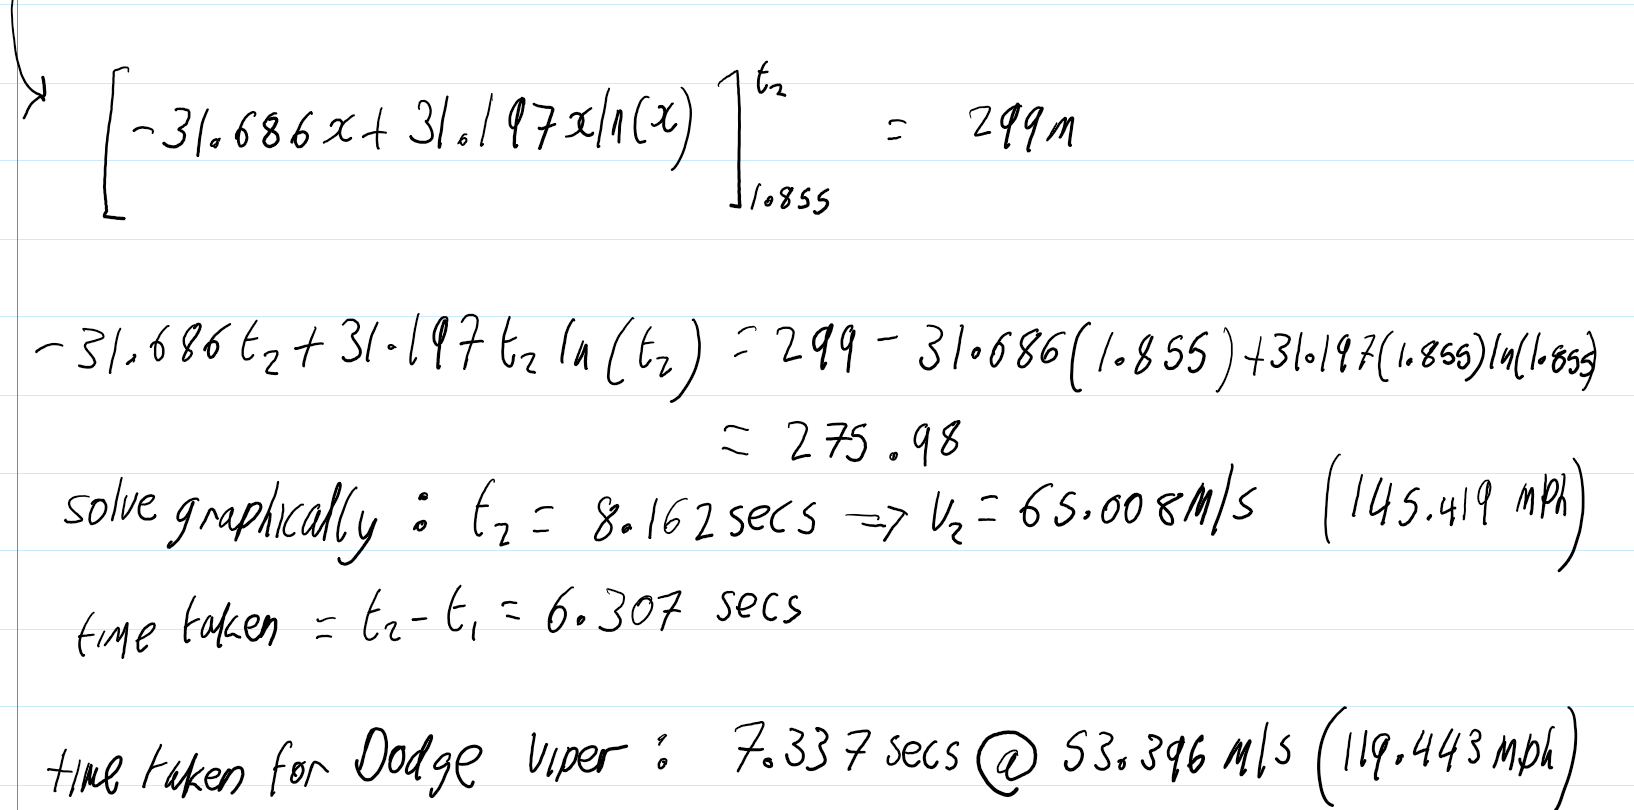 [-31.686x + 31.197xln(x)]^{t₂}_{1.855} = 299m
-31.686t₂ + 31.197t₂ ln(t₂) = 299 - 31.686(1.855) + 31.197(1.855)ln(1.855)
= 275.98
solve graphically : t₂ = 8.162 secs => V₂ = 65.008m/s (145.419 mph)
time taken = t₂ - t₁ = 6.307 secs
time taken for Dodge Viper : 7.337 secs @ 53.396 m/s (119.443 mph)